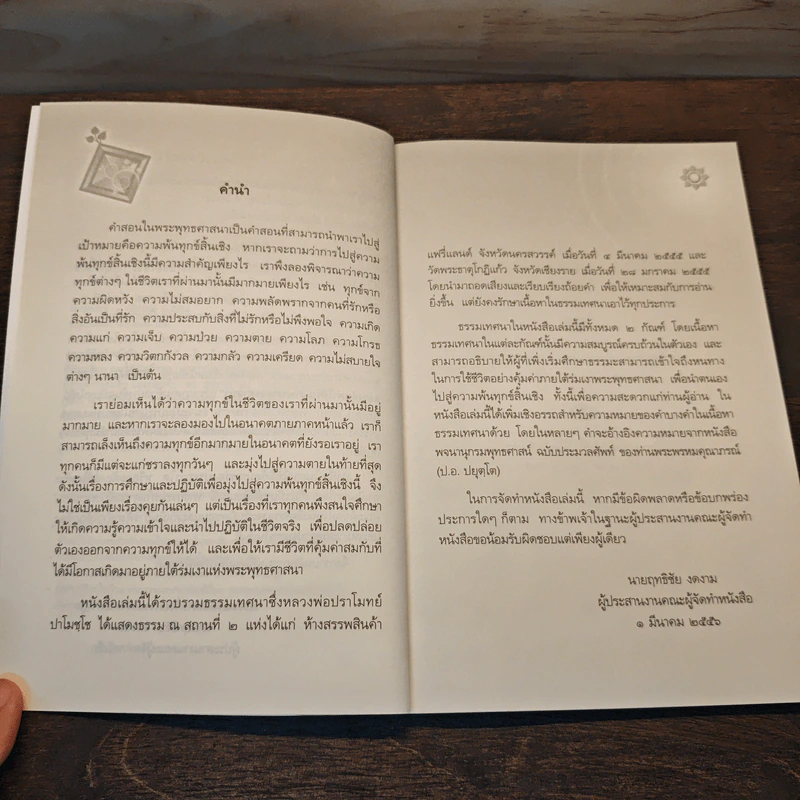 คำนำ
คำสอนในพระพุทธศาสนาเป็นคำสอนที่สามารถนำพาเราไปสู่
เป้าหมายคือความพ้นทุกข์สิ้นเชิง หากเราจะถามว่าการไปสู่ความ
พ้นทุกข์สิ้นเชิงนี้มีความสำคัญเพียงไร เราพึงลองพิจารณาว่าความ
ทุกข์ต่างๆ ในชีวิตเราที่ผ่านมานั้นมีมากมายเพียงไร เช่น ทุกข์จาก
ความผิดหวัง ความไม่สมอยาก ความพลัดพรากจากคนที่รักหรือ
สิ่งอันเป็นที่รัก ความประสบกับสิ่งที่ไม่รักหรือไม่พึงพอใจ ความเกิด
ความแก่ ความเจ็บ ความป่วย ความตาย ความโลภ ความโกรธ
ความหลง ความวิตกกังวล ความกลัว ความเครียด ความไม่สบายใจ
ต่างๆ นานา เป็นต้น
เราย่อมเห็นได้ว่าความทุกข์ในชีวิตของเราที่ผ่านมานั้นมีอยู่
มากมาย และหากเราจะลองมองไปในอนาคตภายภาคหน้าแล้ว เราก็
สามารถเล็งเห็นถึงความทุกข์อีกมากมายในอนาคตที่ยังรอเราอยู่ เรา
ทุกคนก็มีแต่จะแก่ชราลงทุกวันๆ และมุ่งไปสู่ความตายในท้ายที่สุด
ดังนั้นเรื่องการศึกษาและปฏิบัติเพื่อมุ่งไปสู่ความพ้นทุกข์สิ้นเชิงนี้ จึง
ไม่ใช่เป็นเพียงเรื่องคุยกันเล่นๆ แต่เป็นเรื่องที่เราทุกคนพึงสนใจศึกษา
ให้เกิดความรู้ความเข้าใจและนำไปปฏิบัติในชีวิตจริง เพื่อปลดปล่อย
ตัวเองออกจากความทุกข์ให้ได้ และเพื่อให้เรามีชีวิตที่คุ้มค่าสมกับที่
ได้มีโอกาสเกิดมาอยู่ภายใต้ร่มเงาแห่งพระพุทธศาสนา
หนังสือเล่มนี้ได้รวบรวมธรรมเทศนาซึ่งหลวงพ่อปราโมทย์
ปาโมชฺโช ได้แสดงธรรม ณ สถานที่ ๒ แห่งได้แก่ ห้างสรรพสินค้า
แฟรี่แลนด์ จังหวัดนครสวรรค์ เมื่อวันที่ ๔ มีนาคม ๒๕๕๕ และ
วัดพระธาตุโกฎิแก้ว จังหวัดเชียงราย เมื่อวันที่ ๒๘ มกราคม ๒๕๕๕
โดยนำมาถอดเสียงและเรียบเรียงถ้อยคำ เพื่อให้เหมาะสมกับการอ่าน
ยิ่งขึ้น แต่ยังคงรักษาเนื้อหาในธรรมเทศนาเอาไว้ทุกประการ
ธรรมเทศนาในหนังสือเล่มนี้มีทั้งหมด ๒ กัณฑ์ โดยเนื้อหา
ธรรมเทศนาในแต่ละกัณฑ์นั้นมีความสมบูรณ์ครบถ้วนในตัวเอง และ
สามารถอธิบายให้ผู้ที่เพิ่งเริ่มศึกษาธรรมะสามารถเข้าใจถึงหนทาง
ในการใช้ชีวิตอย่างคุ้มค่าภายใต้ร่มเงาพระพุทธศาสนา เพื่อนำตนเอง
ไปสู่ความพ้นทุกข์สิ้นเชิง ทั้งนี้เพื่อความสะดวกแก่ท่านผู้อ่าน ใน
หนังสือเล่มนี้ได้เพิ่มเชิงอรรถสำหรับความหมายของคำบางคำในเนื้อหา
ธรรมเทศนาด้วย โดยในหลายๆ คำจะอ้างอิงความหมายจากหนังสือ
พจนานุกรมพุทธศาสน์ ฉบับประมวลศัพท์ ของท่านพระพรหมคุณาภรณ์
(ป.อ. ปยุตฺโต)
ในการจัดทำหนังสือเล่มนี้ หากมีข้อผิดพลาดหรือข้อบกพร่อง
ประการใดๆ ก็ตาม ทางข้าพเจ้าในฐานะผู้ประสานงานคณะผู้จัดทำ
หนังสือขอน้อมรับผิดชอบแต่เพียงผู้เดียว
นายฤทธิชัย งดงาม
ผู้ประสานงานคณะผู้จัดทำหนังสือ
๑ มีนาคม ๒๕๕๖